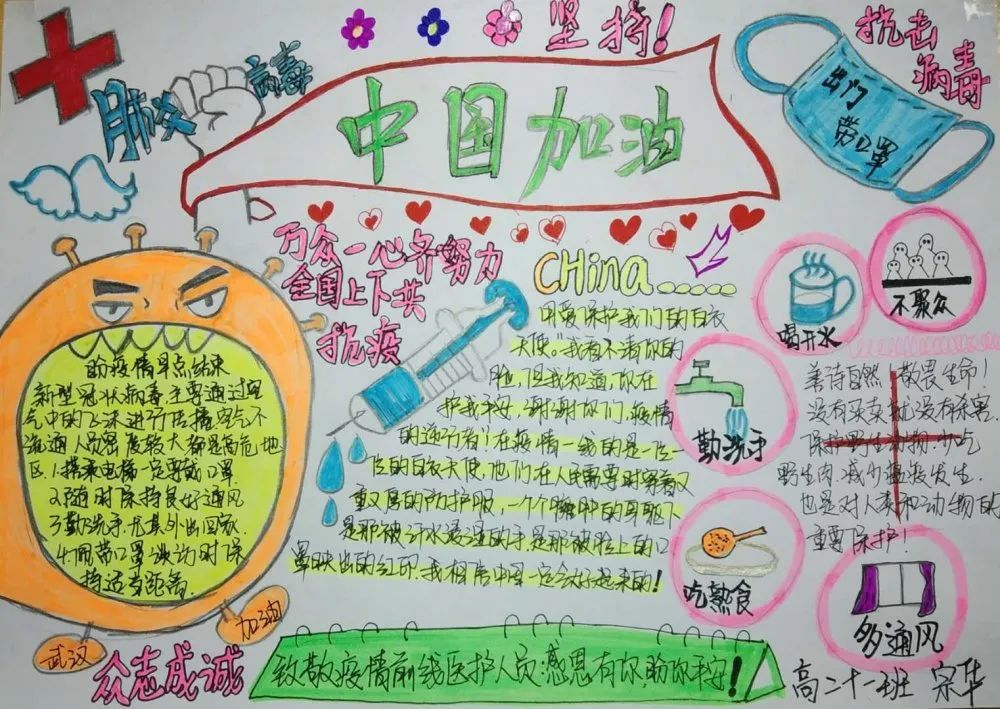 坚持!
抗击
病毒
肺炎
病毒
中国加油
出门
带口罩
万众一心齐努力
全国上下共
抗疫
CHina......
盼疫情早点结束
新型冠状病毒主要通过空
气中的飞沫进行传播,空气不
流通人员密度较大都是高危地
区.1.搭乘电梯一定要戴口罩
2.随时保持良好通风
3.勤洗手.尤其外出回家.
4.佩带口罩谈话时保
持适当距离.
武汉
加油
众志成诚
用爱保护我们的白衣
天使。我看不清你的
脸,但我知道,你在
护我平安.谢谢你们,疫情
的逆行者!在疫情一线的是一位
位的白衣天使,他们在人民需要时穿着又
重又厚的防护服,一个个臃肿的身躯下
是那被汗水浸湿的手,是那被脸上的口
罩映出的红印.我相信中国一定会好起来的!
喝开水
不聚众
勤洗手
吃熟食
多通风
善待自然,敬畏生命!
没有买卖就没有杀害.
保护野生动物.少吃
野生肉.减少瘟疫发生.
也是对人类和动物的
重要保护!
致敬疫情前线医护人员:感恩有你,盼你平安!
高二十一班 宗华